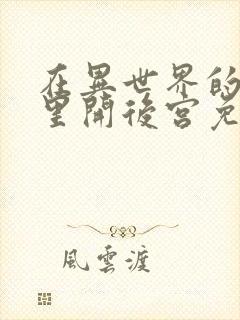 在異世界的
里開後宮免
風雲渡